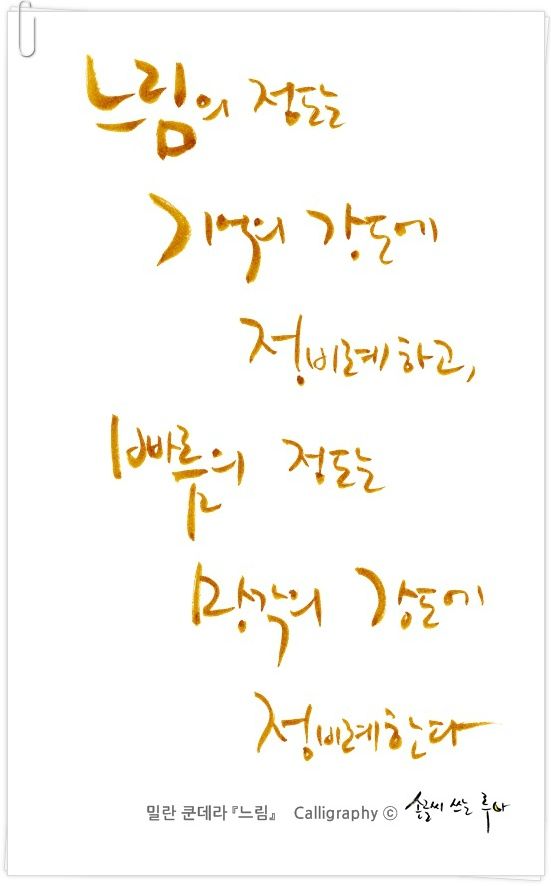 느림의 정도는
기억의 강도에
정비례하고,
빠름의 정도는
망각의 강도에
정비례한다
밀란 쿤데라 『느림』 Calligraphy ⓒ 손글씨 쓰는 루아